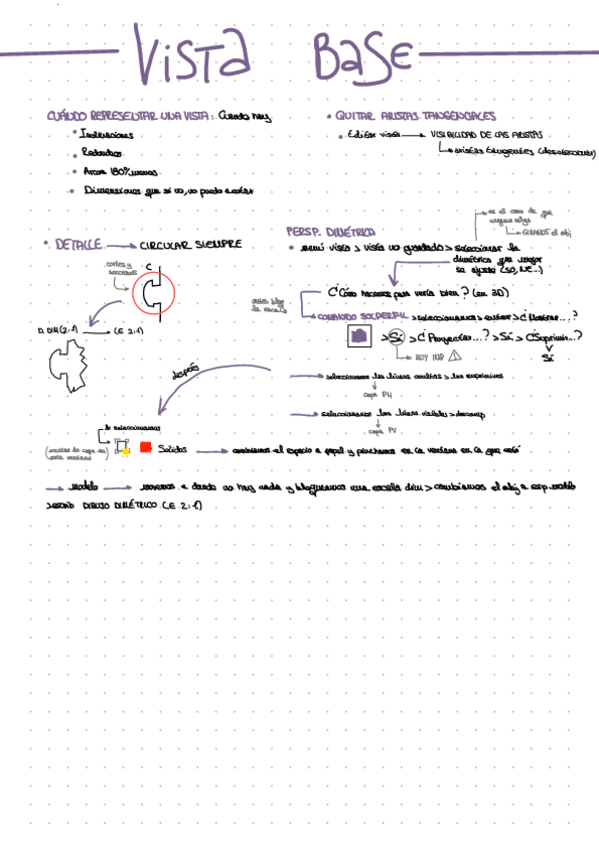 VISTA BASE
CUÁNDO REPRESENTAR UNA VISTA: Cuando hay
• Inclinaciones
• Redondeos
• Arcos 180º/menos
• Dimensiones que si no, no puedo acotar
• QUITAR ARISTAS TANGENCIALES
• Editar vista → VISIBILIDAD DE LAS ARISTAS
aristas tangentes (deseleccionar)
• DETALLE → CIRCULAR SIEMPRE
cortes y secciones
C
D. Dth (2:1) → (E 2:1)
PERSP. DIMÉTRICA
en el caso de que
giramos el obj
• menú vista > vista no guardada > seleccionar la
dimétrica que mejor
se ajuste (SO, NE...)
¿Cómo hacemos para verla bien? (en 3D)
la escala
→ COMANDO SOLPERFIL > seleccionamos > enter > ¿Mostrar...?
> Sí > ¿Proyectar...? > Sí > ¿Suprimir...?
MUY IMP
Sí
después
→ seleccionamos las líneas ocultas > las suprimimos
capa PH
→ seleccionamos las líneas visibles >
capa PV
lo seleccionamos
Solidos → cambiamos el espacio a papel y pinchamos en la ventana en la que está
→ modelo → movemos a donde no hay nada y bloqueamos una escala dim > cambiamos el obj a esp. modelo
DIBUJO DIMÉTRICO (E 2:1)